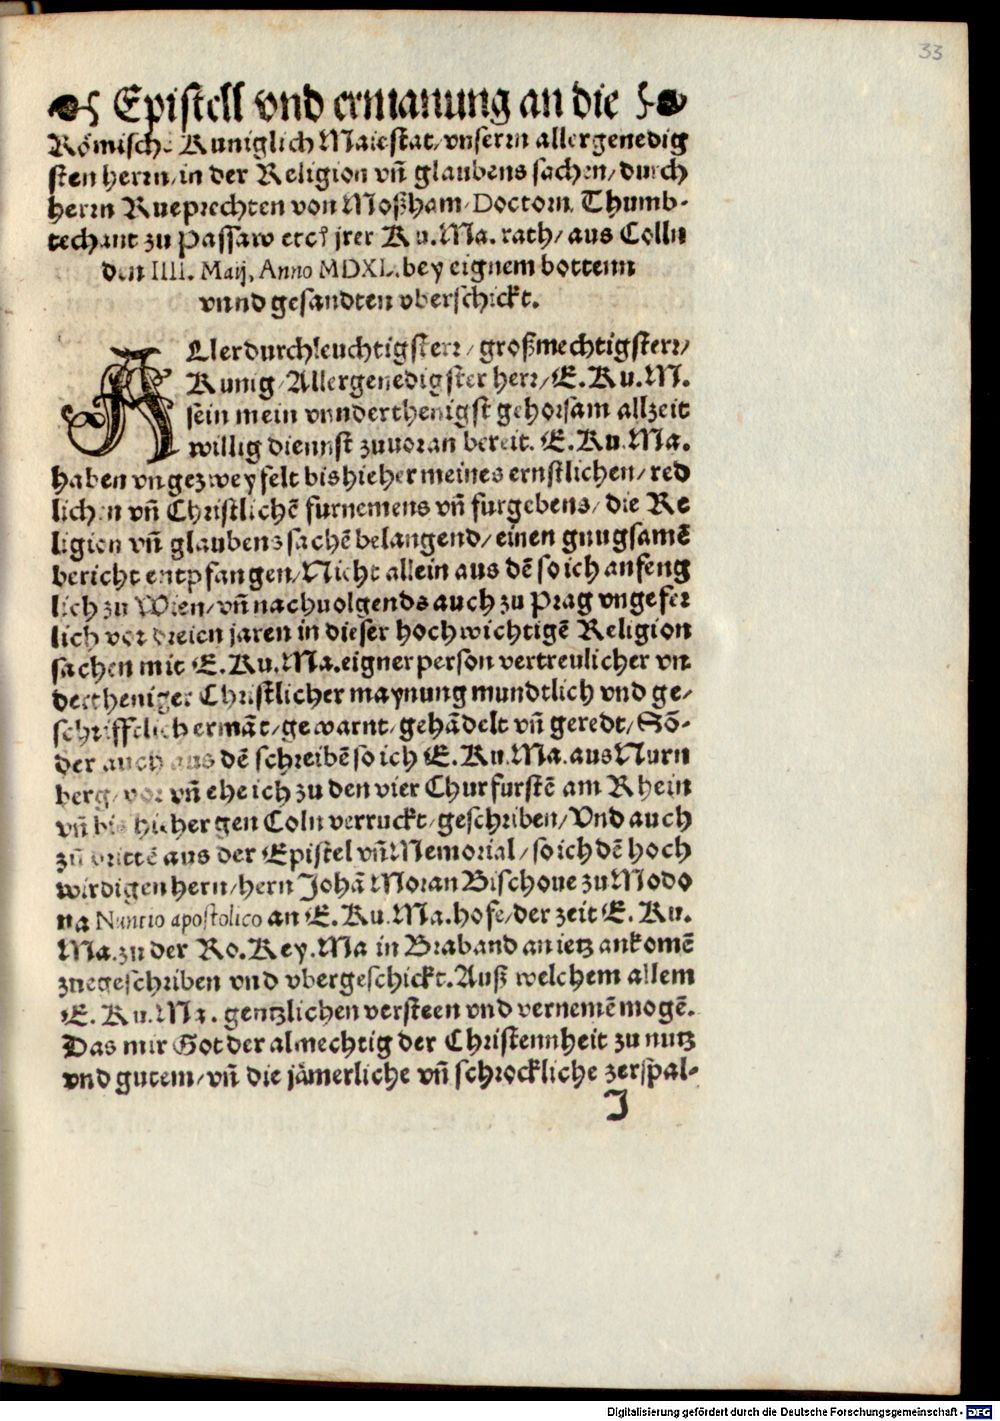 33
Epistell vnd ermanung an die
Römisch. Kuniglich Maiestat/vnserm allergenedig
sten herrn/in der Religion vñ glaubens sachen/durch
herrn Rueprechten von Moßham/Doctorn. Thumb-
techant zu Passaw etc? jrer Ku.Ma. rath/aus Colln
den IIII. Maij, Anno MDXL. bey eignem bottenn
vnnd gesandten vberschickt.
ALlerdurchleuchtigsterr/großmechtigsterr/
Kunig/Allergenedigster herr/E.Ku.M.
sein mein vnnderthenigst gehorsam allzeit
willig diennst zuuoran bereit. E.Ku.Ma.
haben vngezweyfelt bishieher meines ernstlichen/red
lichen vñ Christlichẽ furnemens vñ furgebens/die Re
ligion vñ glaubens sachẽ belangend/einen gnugsamẽ
bericht entpfangen/Nicht allein aus dẽ so ich anfeng
lich zu Wien/vñ nachuolgends auch zu Prag vngefer
lich vor dreien jaren in dieser hochwichtigẽ Religion
sachen mit E.Ku.Ma.eigner person vertreulicher vn
dertheniger Christlicher maynung mundtlich vnd ge/
schrifftlich ermãt/gewarnt/gehãdelt vñ geredt/Sõ-
der auch aus dẽ schreibẽ so ich E.Ku.Ma.aus Nurn
berg/vor vñ ehe ich zu den vier Churfurstẽ am Rhein
vñ bis hieher gen Coln verruckt/geschriben/Vnd auch
zũ drittẽ aus der Epistel vñ Memorial/so ich dẽ hoch
wirdigen hern/hern Johã Moran Bischoue zu Modo
na Nuncio apostolico an E.Ku.Ma.hofe/der zeit E. Ku.
Ma.zu der Ro.Key.Ma in Braband an ietz ankomẽ
zuegeschriben vnd vbergeschickt.Auß welchem allem
E.Ku.Ma. gentzlichen versteen vnd vernemẽ mogẽ.
Das mir Got der almechtig der Christennheit zu nutz
vnd gutem/vñ die jämerliche vñ schrockliche zerspal-
I
Digitalisierung gefördert durch die Deutsche Forschungsgemeinschaft - DFG